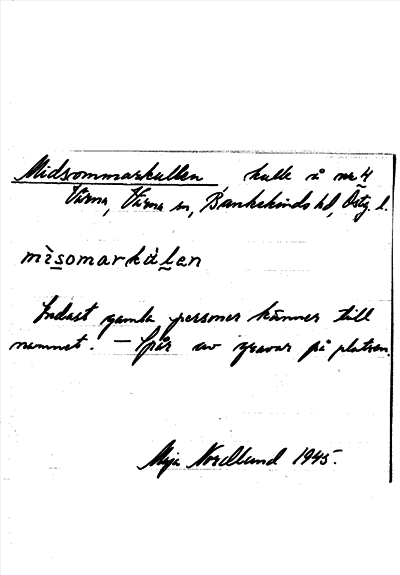 Midsommarkullen kulle å nr 4
Värna, Värna sn, Bankekinds hd, Östg. l.
mìsomarkálen
Endast gamla personer känner till
namnet. – Spår av gravar på platsen.
Maja Nordlund 1945.